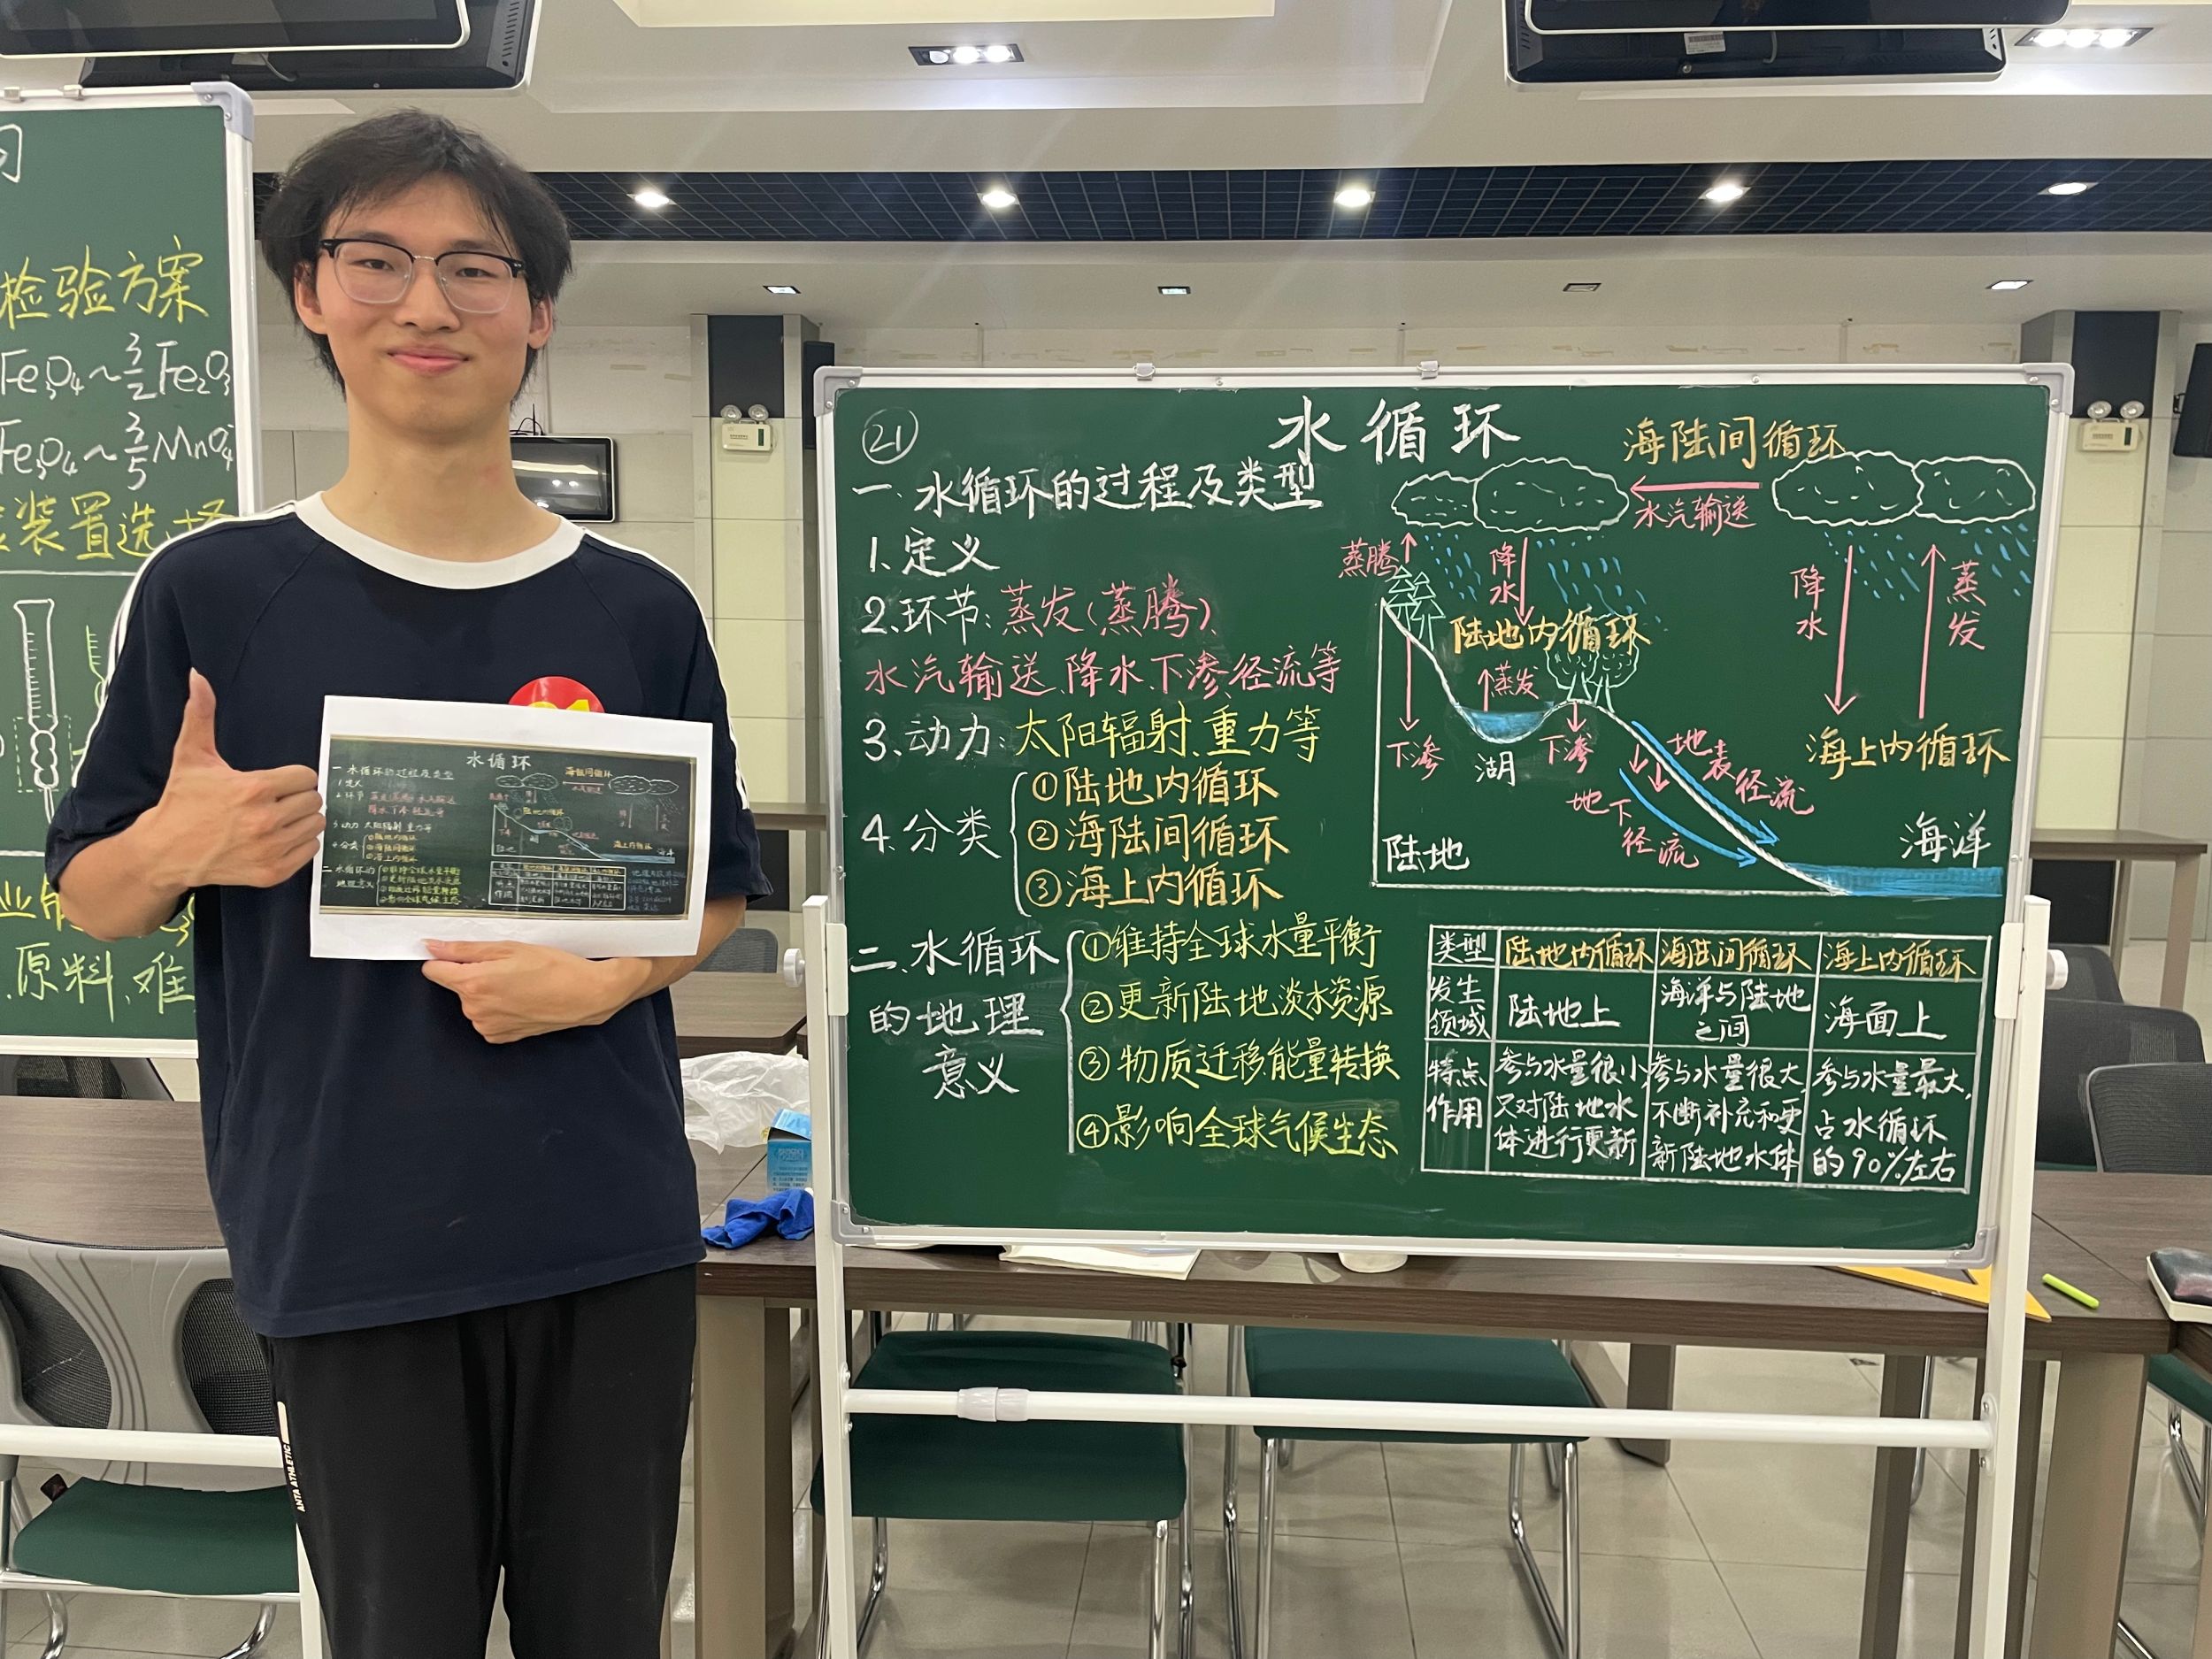 检验方案
Fe₃O₄~3/2Fe₂O₃
Fe₃O₄~3/5MnO₄⁻
装置选择
原料、难
21
水循环
一、水循环的过程及类型
1.定义
2.环节:蒸发(蒸腾)、
水汽输送、降水、下渗、径流等
3.动力:太阳辐射、重力等
4.分类
①陆地内循环
②海陆间循环
③海上内循环
二、水循环的地理意义
①维持全球水量平衡
②更新陆地淡水资源
③物质迁移、能量转换
④影响全球气候生态
海陆间循环
水汽输送
蒸腾
降水
陆地内循环
蒸发
下渗
湖
下渗
地表径流
地下径流
陆地
降水
蒸发
海上内循环
海洋
类型 陆地内循环 海陆间循环 海上内循环
发生领域 陆地上 海洋与陆地之间 海面上
特点作用 参与水量很小,又对陆地水体进行更新 参与水量很大不断补充和更新陆地水体 参与水量最大,占水循环的90%左右
水循环
一 水循环的过程及类型
1 定义
2 环节
3 动力 太阳辐射 重力等
4 分类
二 水循环的地理意义
海陆间循环
海上内循环
海洋
陆地
ANTA ATHLETIC